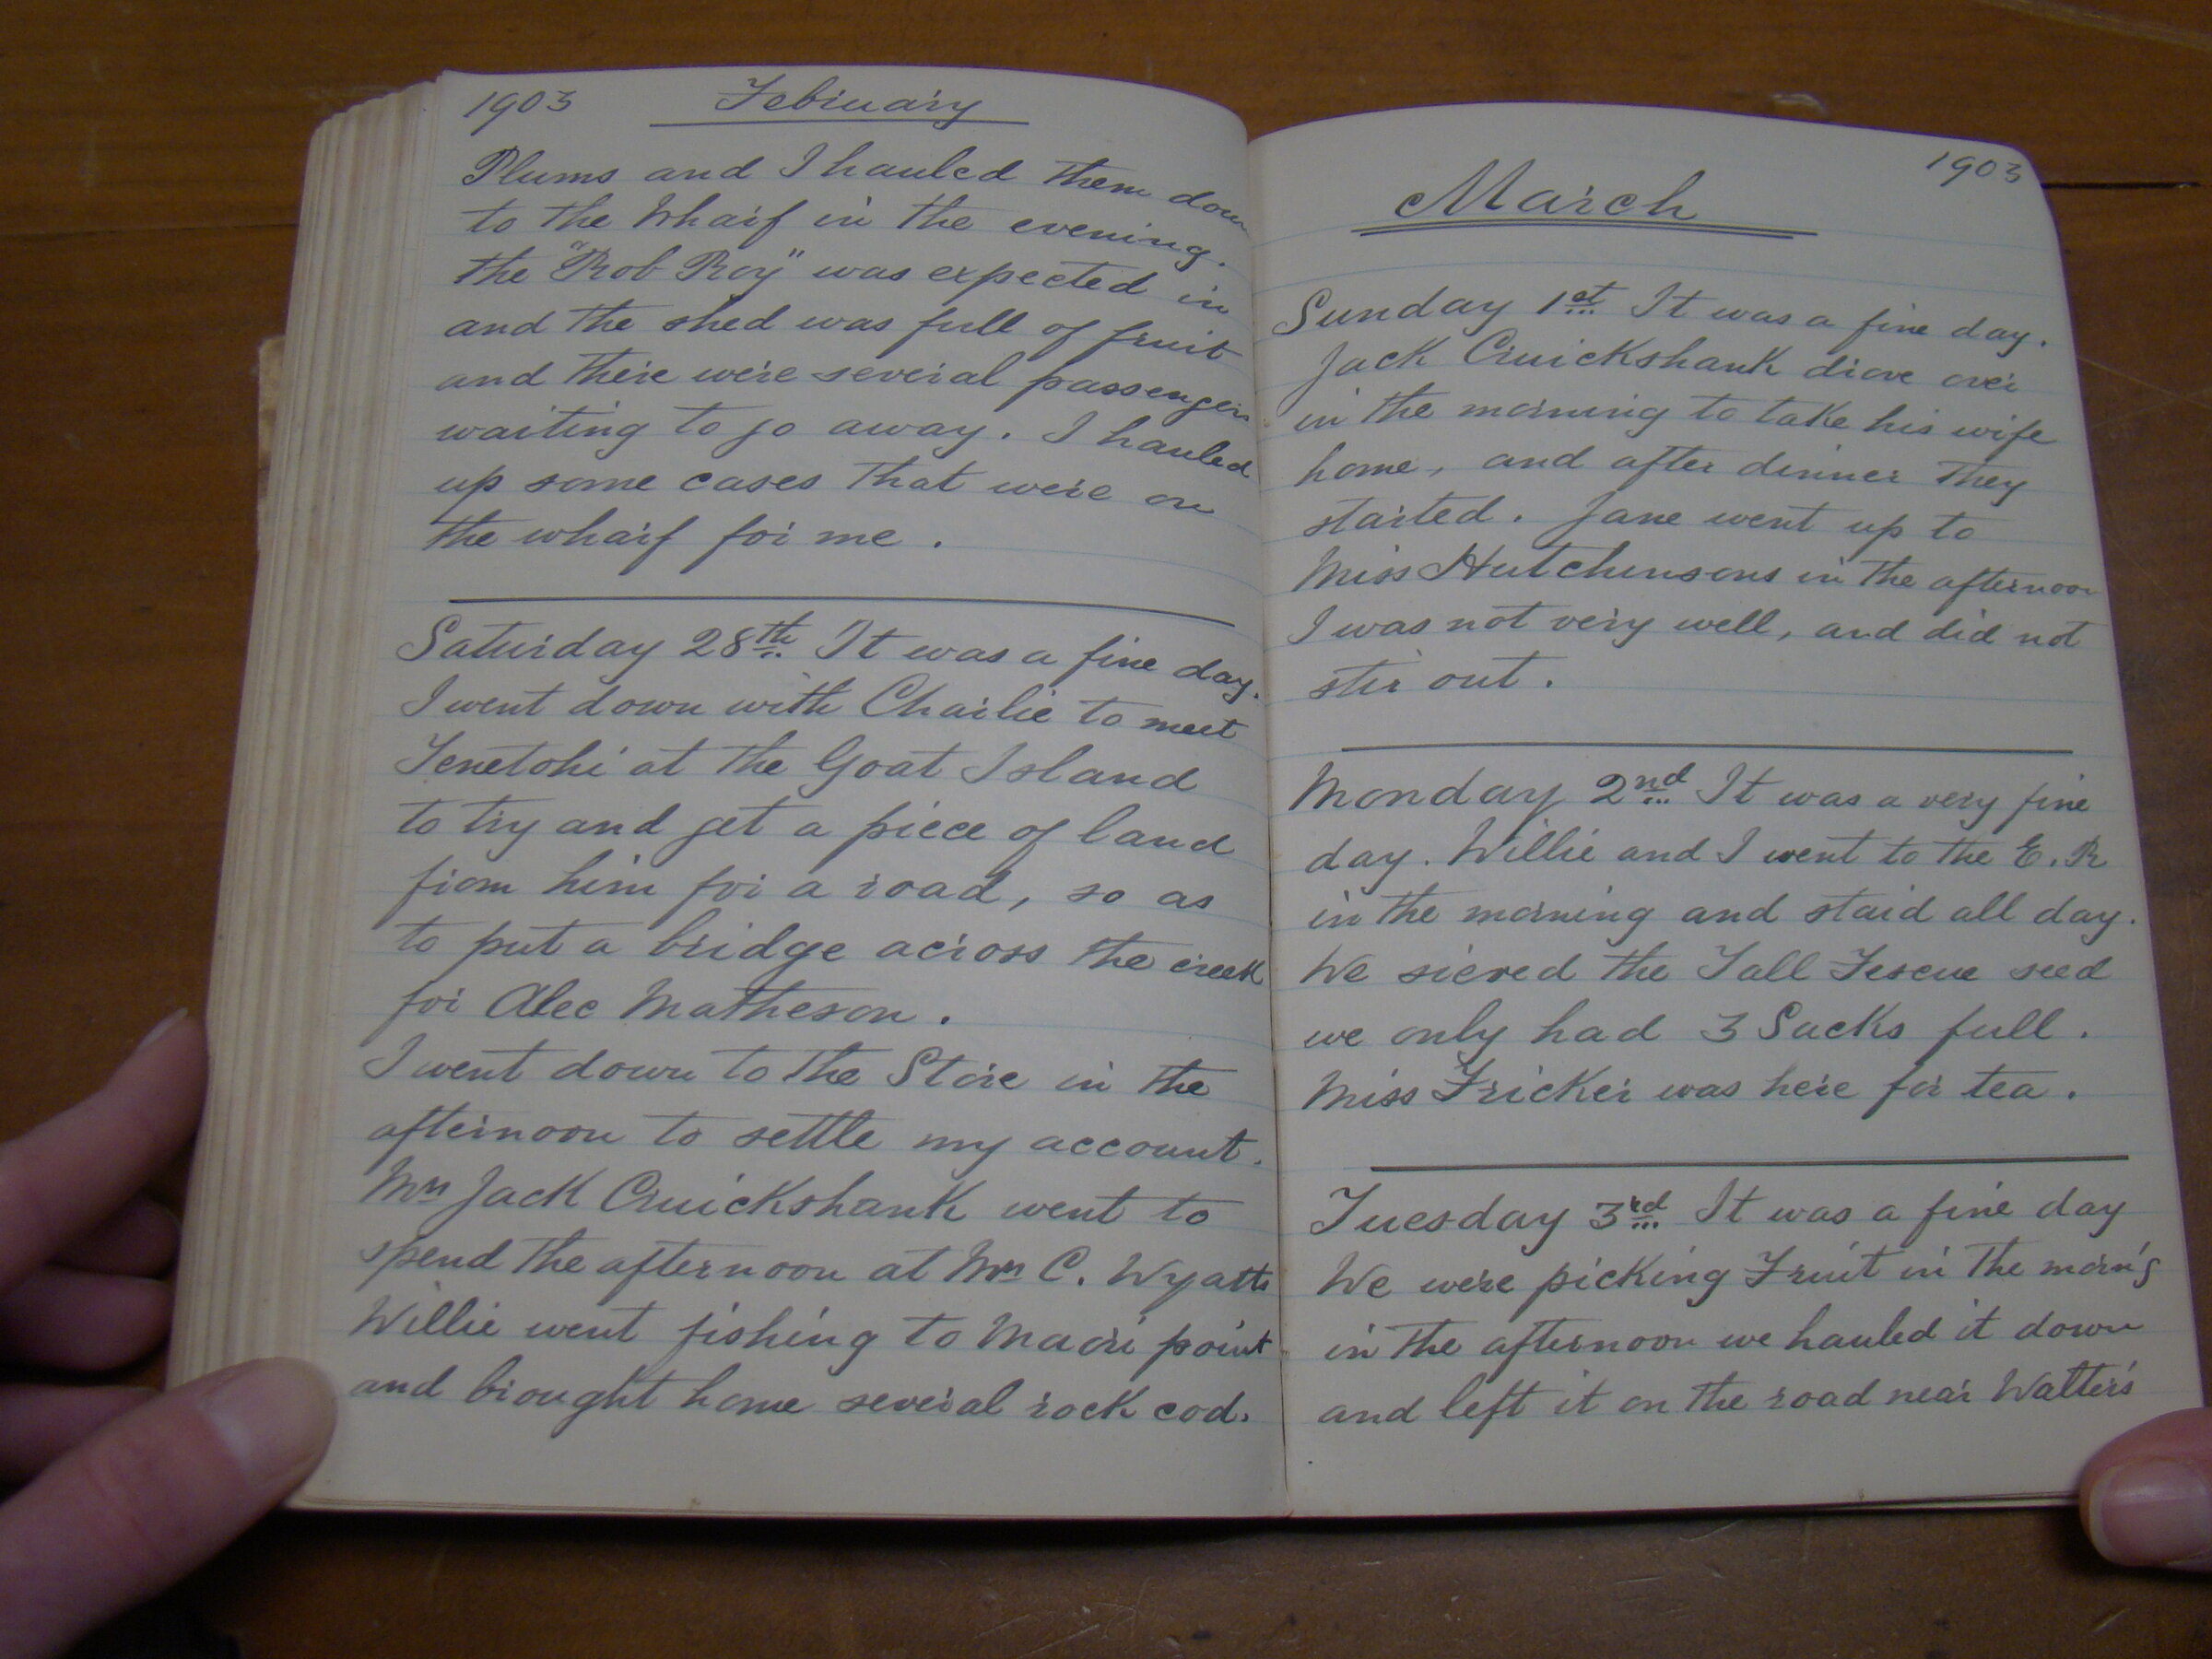 1903 February
Plums and I hauled them down
to the Wharf in the evening.
the "Rob Roy" was expected in
and the shed was full of fruit
and there were several passengers
waiting to go away. I hauled
up some cases that were on
the wharf for me.
Saturday 28th It was a fine day.
I went down with Charlie to meet
Tenetohi at the Goat Island
to try and get a piece of land
from him for a road, so as
to put a bridge across the creek
for Alec Matheson.
I went down to the Store in the
afternoon to settle my account.
Mrs Jack Cruickshank went to
spend the afternoon at Mrs C. Wyatts
Willie went fishing to Maori point
and brought home several rock cod.
1903
March
Sunday 1st It was a fine day.
Jack Cruickshank drove over
in the morning to take his wife
home, and after dinner they
started. Jane went up to
Miss Hutchinsons in the afternoon
I was not very well, and did not
stir out.
Monday 2nd It was a very fine
day. Willie and I went to the E. R
in the morning and staid all day.
We sieved the Tall Fescue seed
we only had 3 Sacks full.
Miss Fricker was here for tea.
Tuesday 3rd It was a fine day
We were picking Fruit in the morn'g
in the afternoon we hauled it down
and left it on the road near Walters